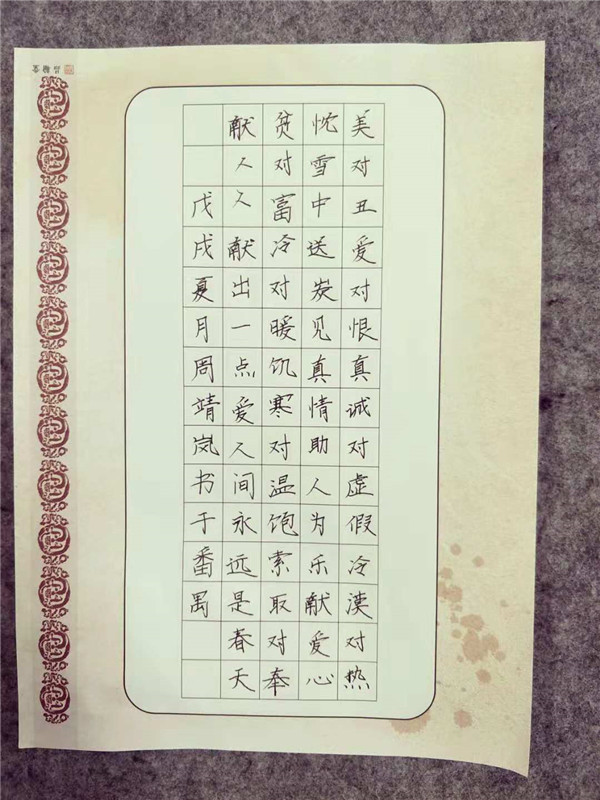 美对丑爱对恨真诚对虚假冷漠对热
忱雪中送炭见真情助人为乐献爱心
贫对富冷对暖饥寒对温饱索取对奉
献人人献出一点爱人间永远是春天
戊戌夏月周靖岚书于番禺